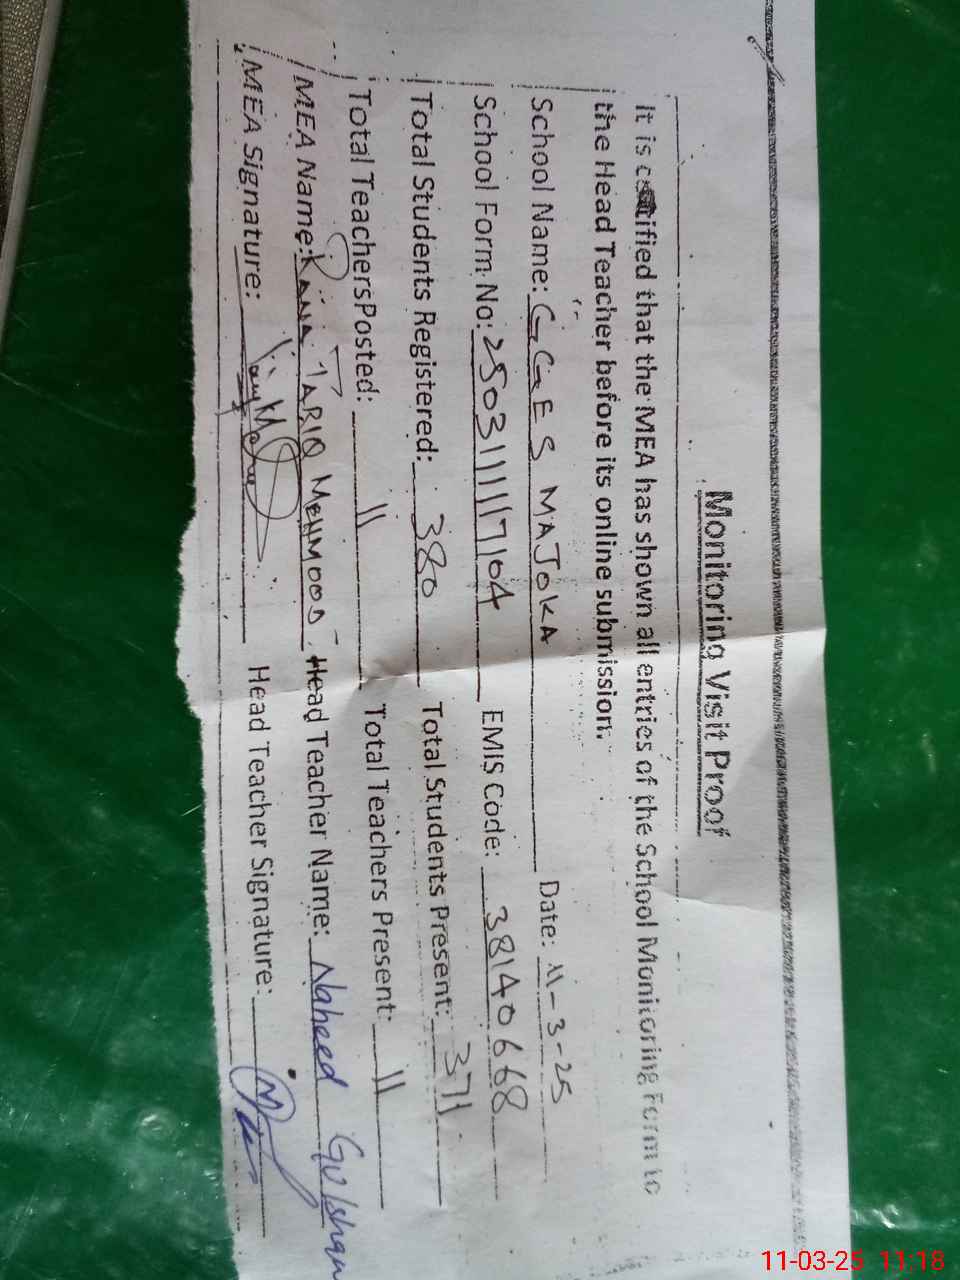 Monitoring Visit Proof
It is certified that the MEA has shown all entries of the School Monitoring Form to
the Head Teacher before its online submission.
School Name: GGES MAJOKA Date: 11-3-25
School Form No: 250311117104 EMIS Code: 38140668
Total Students Registered: 380 Total Students Present: 371
Total Teachers Posted: 11 Total Teachers Present: 11
MEA Name: RANA TARIQ MEHMOOD Head Teacher Name: Naheed Gulshan
MEA Signature: Head Teacher Signature:
11-03-25 11:18